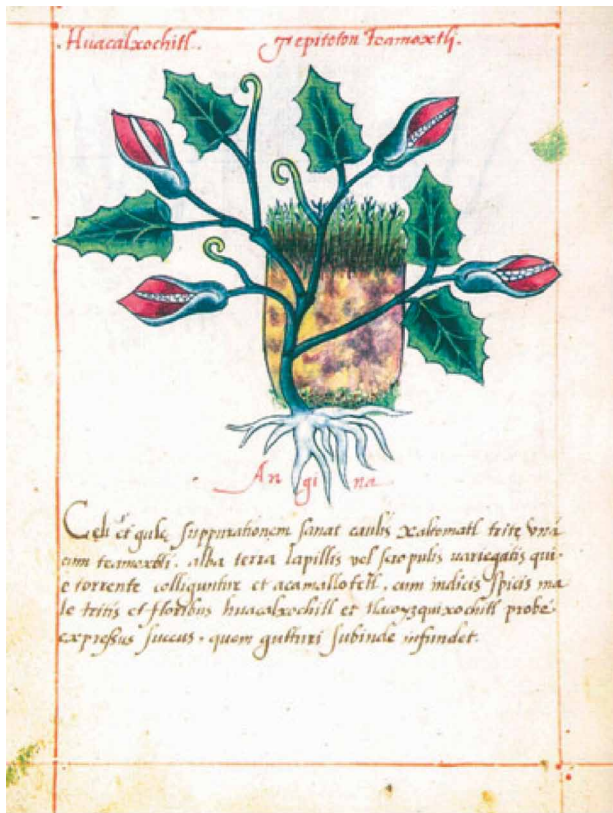 Huacalxochitl. Tepitoton Teamoxtli.
Angina
Coli et gule suppurationem sanat caulis xaltomatl trite vna
cum teamoxtli, alba terra lapillis vel scropulis uariegatis qui
e torrente colliguntur et acamallotetl, cum indicis spicis ma
le tritis et floribus huacalxochitl et tlacoyzquixochitl probe
expressus succus, quem gutturi subinde infundet.